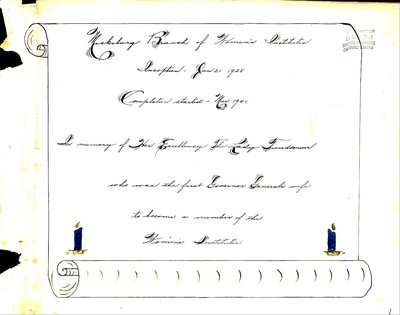 Micksburg Branch of Women's Institute
Inception - Jan 21 1925
Compilation started - Nov 1941
In memory of Her Excellency The Lady Tweedsmuir
who was the first Governor Generals wife
to become a member of the
Women's Institute